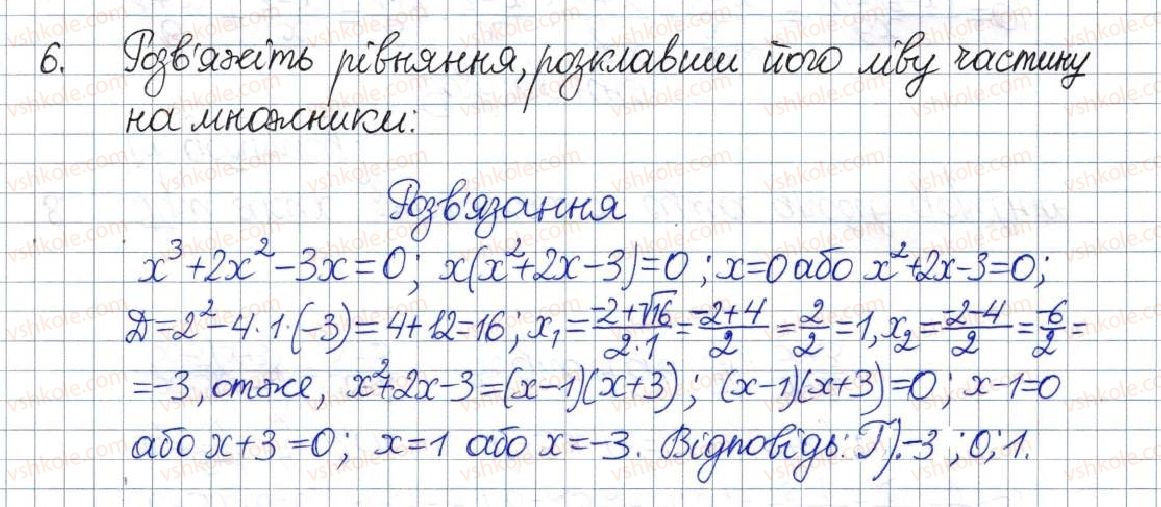 6. Розв'яжіть рівняння, розклавши його ліву частину
на множники:
Розв'язання
x³+2x²-3x=0; x(x²+2x-3)=0; x=0 або x²+2x-3=0;
Д=2²-4·1·(-3)=4+12=16; x₁=(-2+√16)/(2·1)=(-2+4)/2=2/2=1, x₂=(-2-4)/2=-6/2=
=-3, отже, x²+2x-3=(x-1)(x+3); (x-1)(x+3)=0; x-1=0
або x+3=0; x=1 або x=-3. Відповідь: Г).-3; 0; 1.